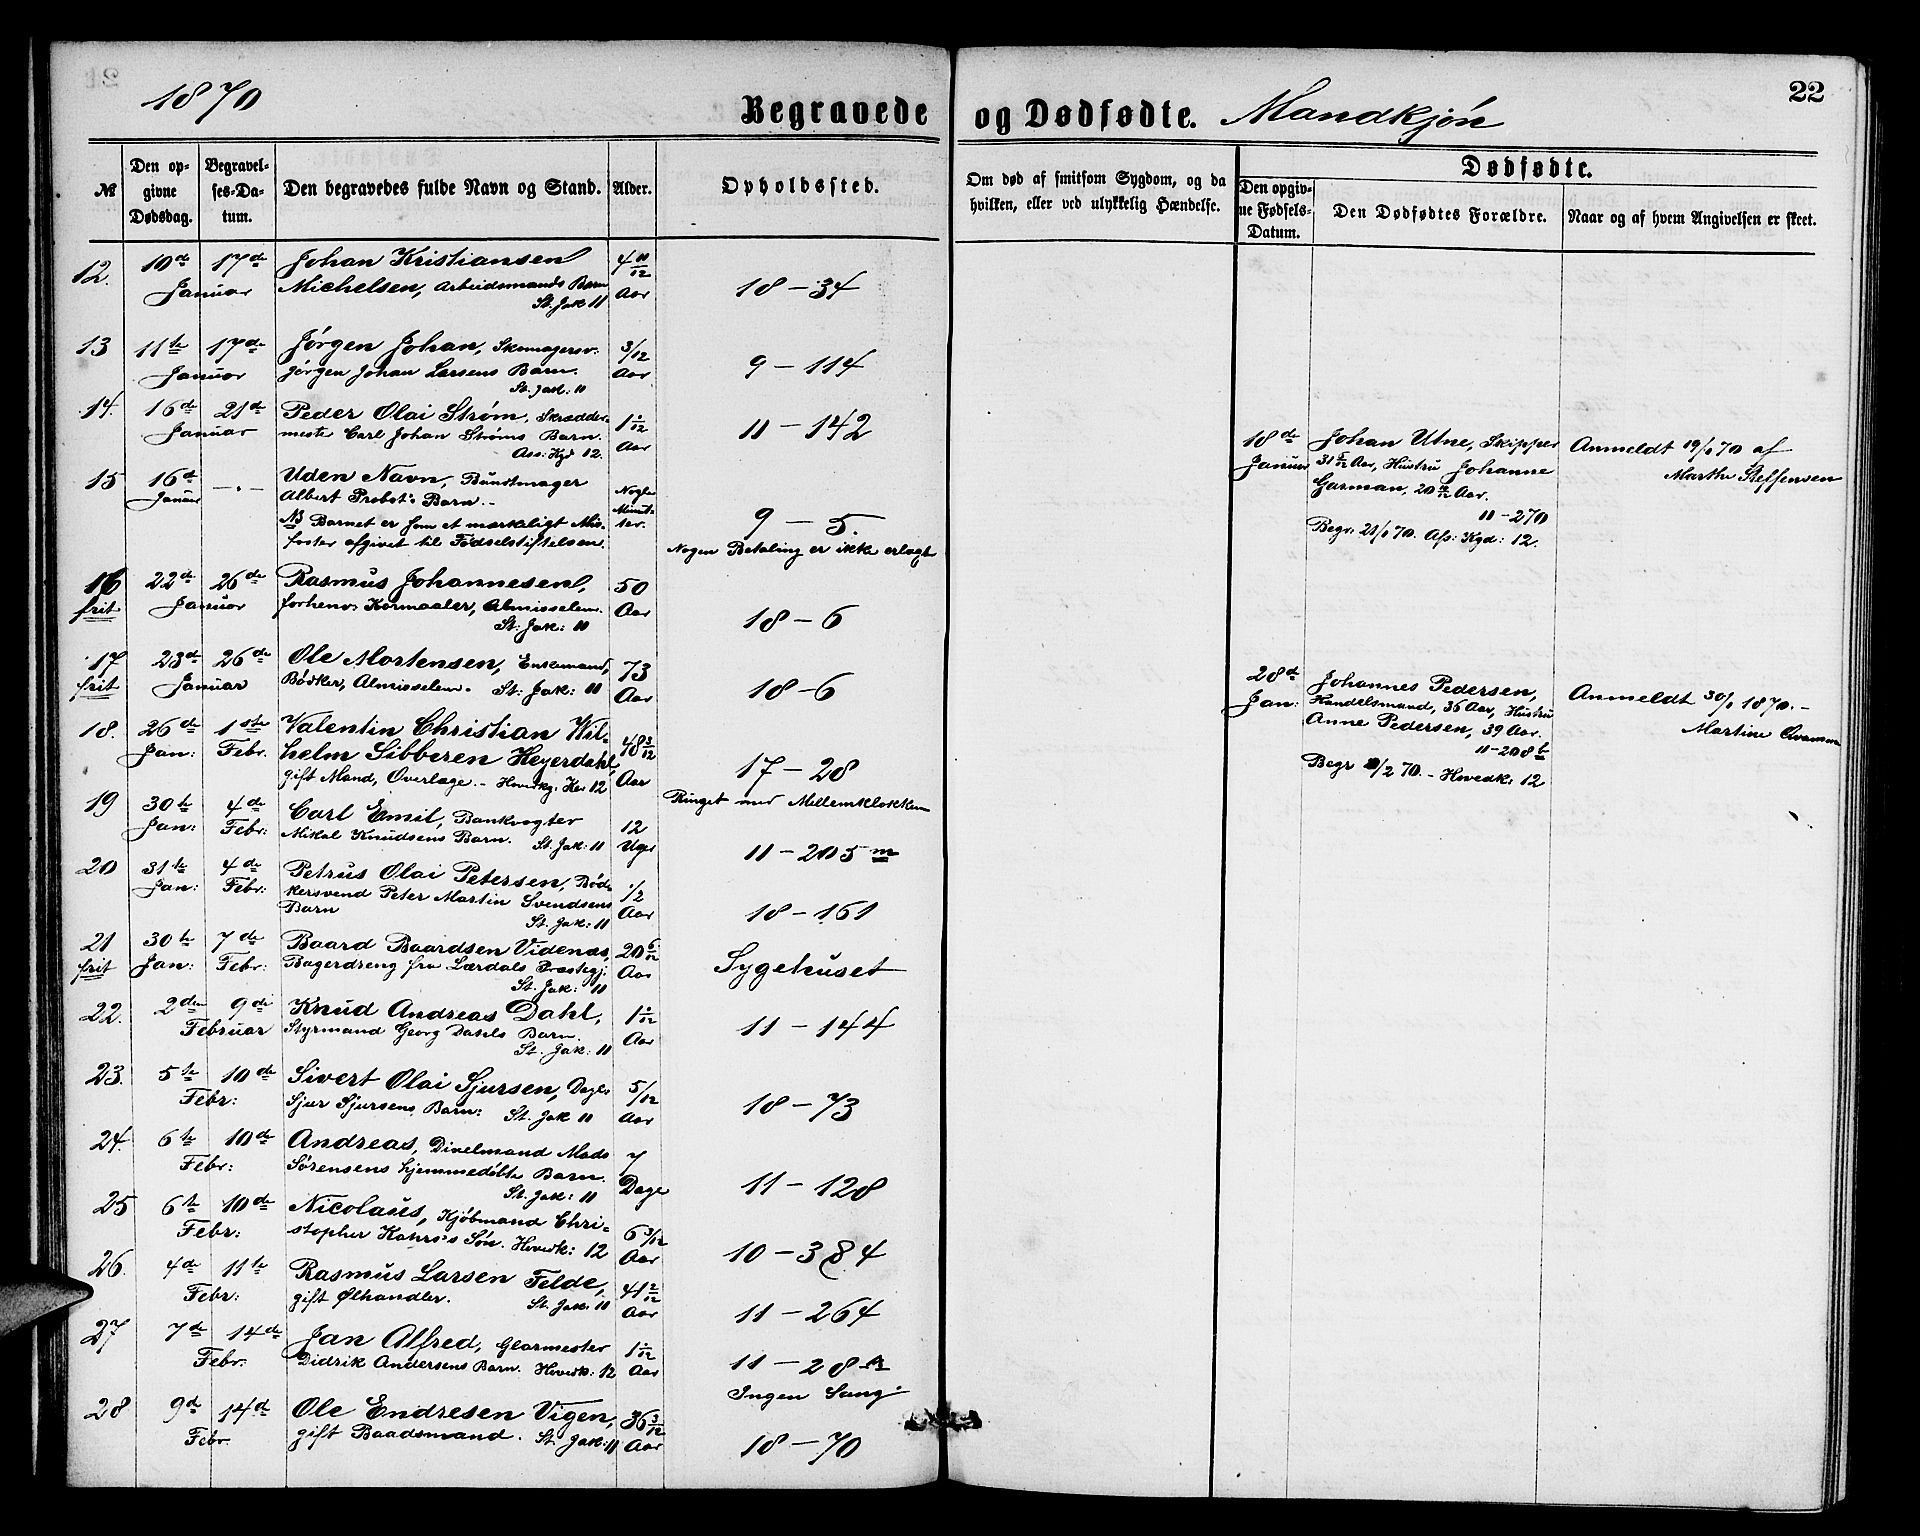 1870
Begravede og Dødfødte. Mandkjøn
22
№
Den opgivne Dødsdag.
Begravelses-Datum.
Den begravedes fulde Navn og Stand.
Alder.
Opholdssted.
Om død af smitsom Sygdom, og da hvilken, eller ved ulykkelig Hændelse.
Dødfødte.
Den opgivne Fødsels-Datum.
Den Dødfødtes Forældre.
Naar og af hvem Angivelsen er skeet.
12. 10de 17de Johan Kristiansen 4 11/12
Januar Michelsen, Arbeidsmands Barn Aar 18-34
St. Jak 11
13 11te 17de Jörgen Johan, Skomagersv. 3/12
Januar Jörgen Johan Larsens Barn. Aar 9-114
St. Jak: 11
14. 16de 21de Peder Olai Strøm, Skrædder-
Januar mester Carl Johan Strøms Barn. Aar 11-142
Ass: Kgd 12.
15 16de -"- Uden Navn, Bundtmager
Januar Albert Probst's Barn.- Nogle Minutter.
NB Barnet er som et mærkeligt Mis- 9-5.
foster afgivet til Födselstiftelsen. Nogen Betaling er ikke erlagt
16 22de 26de Rasmus Johannesen, 50
frit Januar forhenv. Kornmaaler, Almisselem. Aar 18-6
St: Jak: 11
17 23de 26de Ole Mortensen, Enkemand, 73
frit Januar Bödker, Almisselem. St: Jak: 11 Aar 18-6
18. 26de 1ste Valentin Christian Wil-
Jan: Febr. helm Sibbern Heyerdahl, 48 3/12
gift Mand, Overlæge.- Aar 17-28
Ringet med Mellemklokken
19 30te 4de Carl Emil, Bankvogter 12
Jan: Febr: Mikal Knudsens Barn. St. Jak: 11 Uger 11-205 m
20 31te 4de Petrus Olai Petersen, Bød-
Jan: Febr: kersvend Peter Martin Svendsens 1/2
Barn St. Jak: 11 Aar 18-161
21 30te 7de Baard Baardsen Videnæs, 20 6/12
frit Jan: Febr: Bagerdreng fra Lærdals Præstegj. Aar Sygehuset
St. Jak: 11
22. 2den 9de Knud Andreas Dahl,
Februar Styrmand Georg Dahls Barn. Aar 11-144
St. Jak: 11
23. 5te 10de Sivert Olai Sjursen, Dagl. 5/12
Febr: Sjur Sjursens Barn: St. Jak 11 Aar 18-73
24. 6te 10de Andreas, Dixelmand Mads 7
Febr: Sörensens hjemmedöbte Barn. Dage 11-128
St. Jak: 11
25 6te 10de Nicolaus, Kjöbmand Chri-
Febr: stopher Kahrs's Sön. Hovedk: 12 6 3/12 Aar 10-384
26. 4de 11te Rasmus Larsen Felde, 41 2/12
Febr: gift Ølhandler. St. Jak: 11 Aar 11-264
27 7de 14de Jan Alfred, Glarmester
Febr. Didrik Andersens Barn. Hovedk: 12 Aar 11-28
Ingen Sang.
28 9de 14de Ole Endresen Vigen, 36 3/12
Febr. gift Baadsmand. St. Jak: 11 Aar 18-70
18de Johan Utne, Skipper Anmeldt 19/1 70 af
Januar 31 Aar, Hustru Johanne Marthe Steffensen
Garman, 20 Aar.
11-270
Begr. 21/1 70. Ass: Kgd: 12.
28de Johannes Pedersen, Anmeldt 30/1 1870.-
Jan: Handelsmand, 36 Aar, Hustru Martine
Anne Pedersen, 39 Aar.
11-208 b
Begr /2 70.- Hovedk: 12